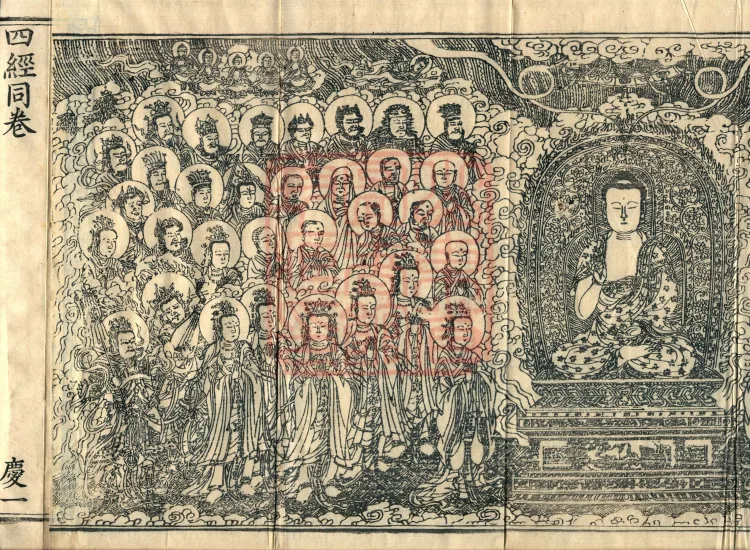 四經同卷
慶一